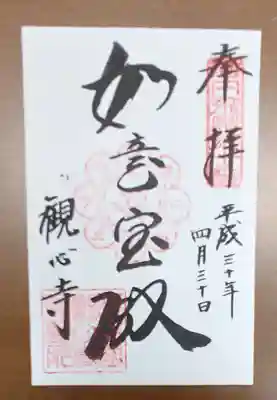 奉拝
平成三十年
四月三十日
如意宝殿
観心寺